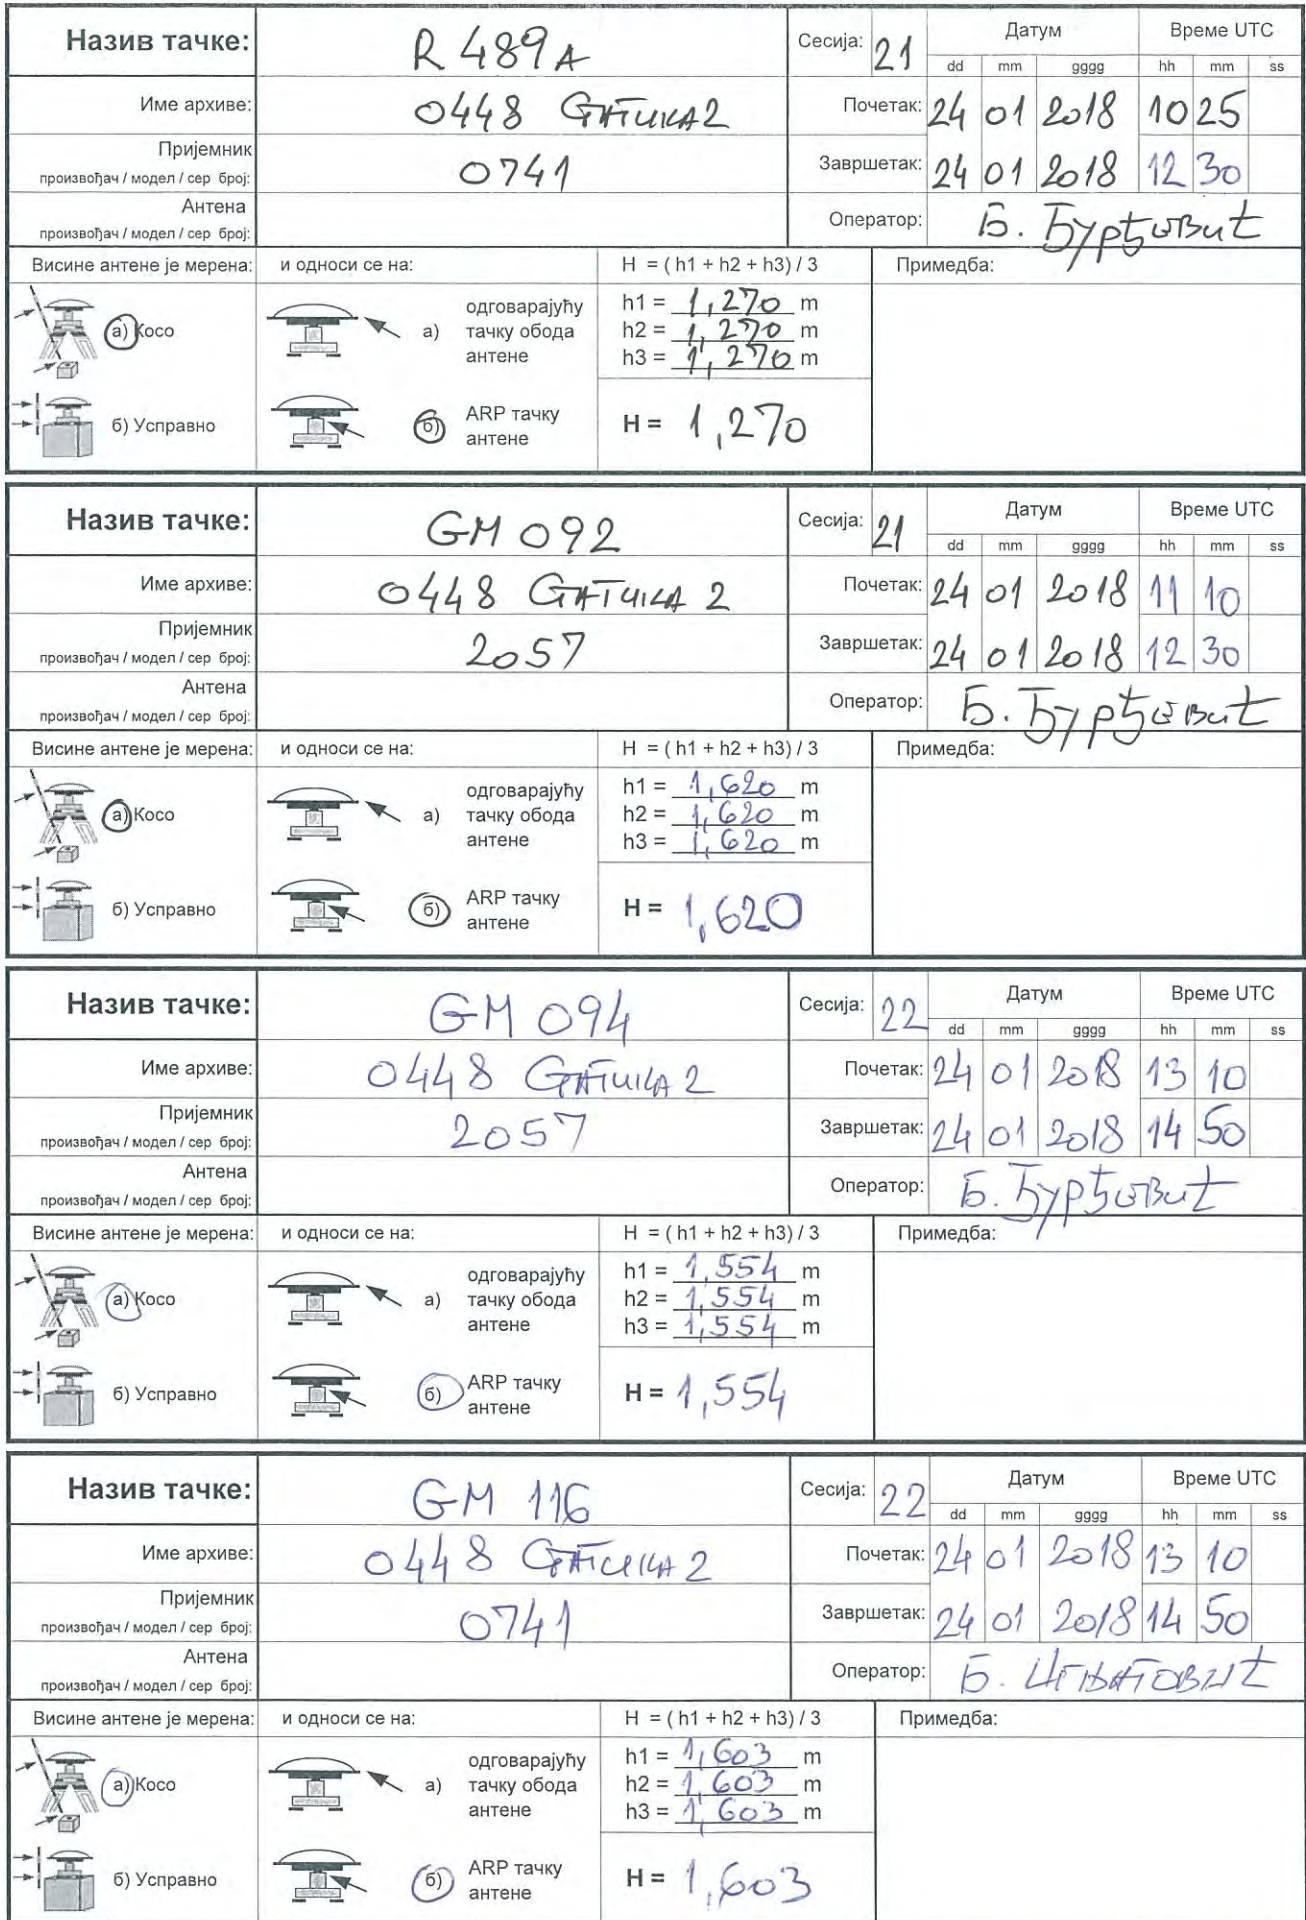 Назив тачке: R 489A Сесија: 21 Датум Време UTC
dd mm gggg hh mm ss
Име архиве: 0448 Почетак: 24 01 2018 10 25
Пријемник
произвођач / модел / сер број: 0741 Завршетак: 24 01 2018 12 30
Антена
произвођач / модел / сер број: Оператор: Б. Ђурђевић
Висине антене је мерена: и односи се на: H = ( h1 + h2 + h3) / 3 Примедба:
а) Косо а) одговарајућу тачку обода антене
h1 = 1,270 m
h2 = 1,270 m
h3 = 1,270 m
б) Усправно б) ARP тачку антене H = 1,270
Назив тачке: GM 092 Сесија: 21 Датум Време UTC
dd mm gggg hh mm ss
Име архиве: 0448 Почетак: 24 01 2018 11 10
Пријемник
произвођач / модел / сер број: 2057 Завршетак: 24 01 2018 12 30
Антена
произвођач / модел / сер број: Оператор: Б. Ђурђевић
Висине антене је мерена: и односи се на: H = ( h1 + h2 + h3) / 3 Примедба:
а) Косо а) одговарајућу тачку обода антене
h1 = 1,620 m
h2 = 1,620 m
h3 = 1,620 m
б) Усправно б) ARP тачку антене H = 1,620
Назив тачке: GM 094 Сесија: 22 Датум Време UTC
dd mm gggg hh mm ss
Име архиве: 0448 Почетак: 24 01 2018 13 10
Пријемник
произвођач / модел / сер број: 2057 Завршетак: 24 01 2018 14 50
Антена
произвођач / модел / сер број: Оператор: Б. Ђурђевић
Висине антене је мерена: и односи се на: H = ( h1 + h2 + h3) / 3 Примедба:
а) Косо а) одговарајућу тачку обода антене
h1 = 1,554 m
h2 = 1,554 m
h3 = 1,554 m
б) Усправно б) ARP тачку антене H = 1,554
Назив тачке: GM 116 Сесија: 22 Датум Време UTC
dd mm gggg hh mm ss
Име архиве: 0448 Почетак: 24 01 2018 13 10
Пријемник
произвођач / модел / сер број: 0741 Завршетак: 24 01 2018 14 50
Антена
произвођач / модел / сер број: Оператор: Б. Игњатовић
Висине антене је мерена: и односи се на: H = ( h1 + h2 + h3) / 3 Примедба:
а) Косо а) одговарајућу тачку обода антене
h1 = 1,603 m
h2 = 1,603 m
h3 = 1,603 m
б) Усправно б) ARP тачку антене H = 1,603